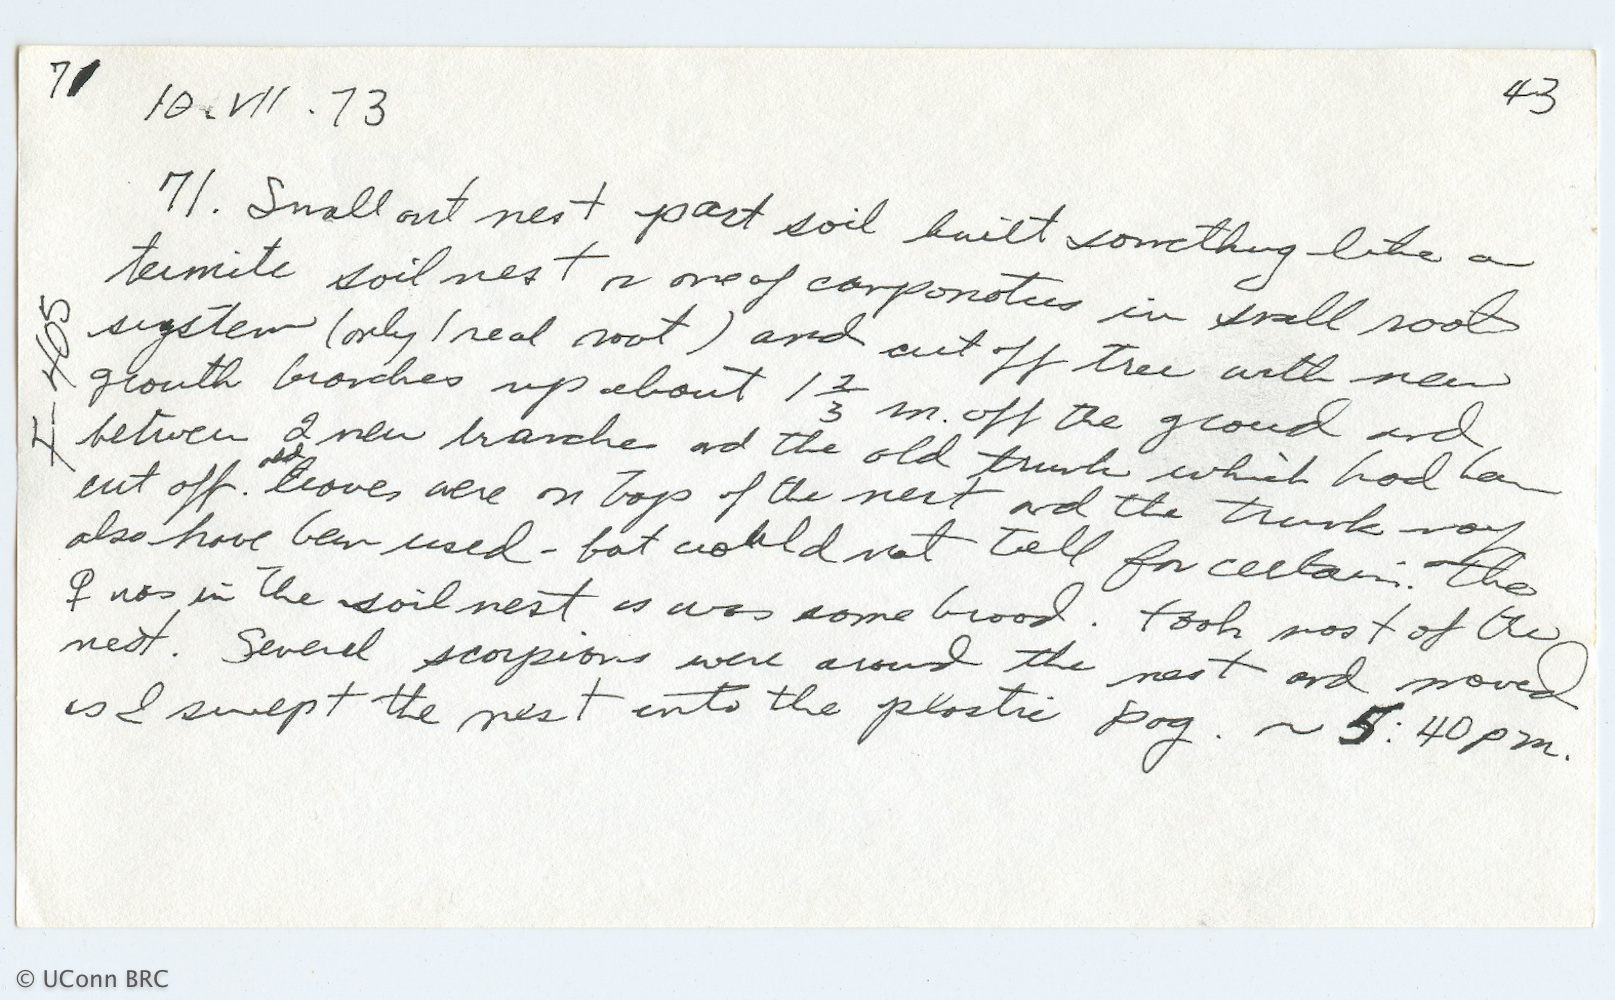 71
43
10.VII.73
71. Small ant nest part soil built something like a
termite soil nest or one of camponotus in small root
system (only 1 real root) and cut off tree with new
growth branches up about 1 2/3 m. off the ground and
between 2 new branches and the old trunk which had been
cut off. old leaves were on top of the nest and the trunk may
also have been used - but could not tell for certain. The
♀ was in the soil nest as was some brood. took most of the
nest. Several scorpions were around the nest and moved
as I swept the nest into the plastic bag. ~ 5:40 pm.
I-465
© UConn BRC